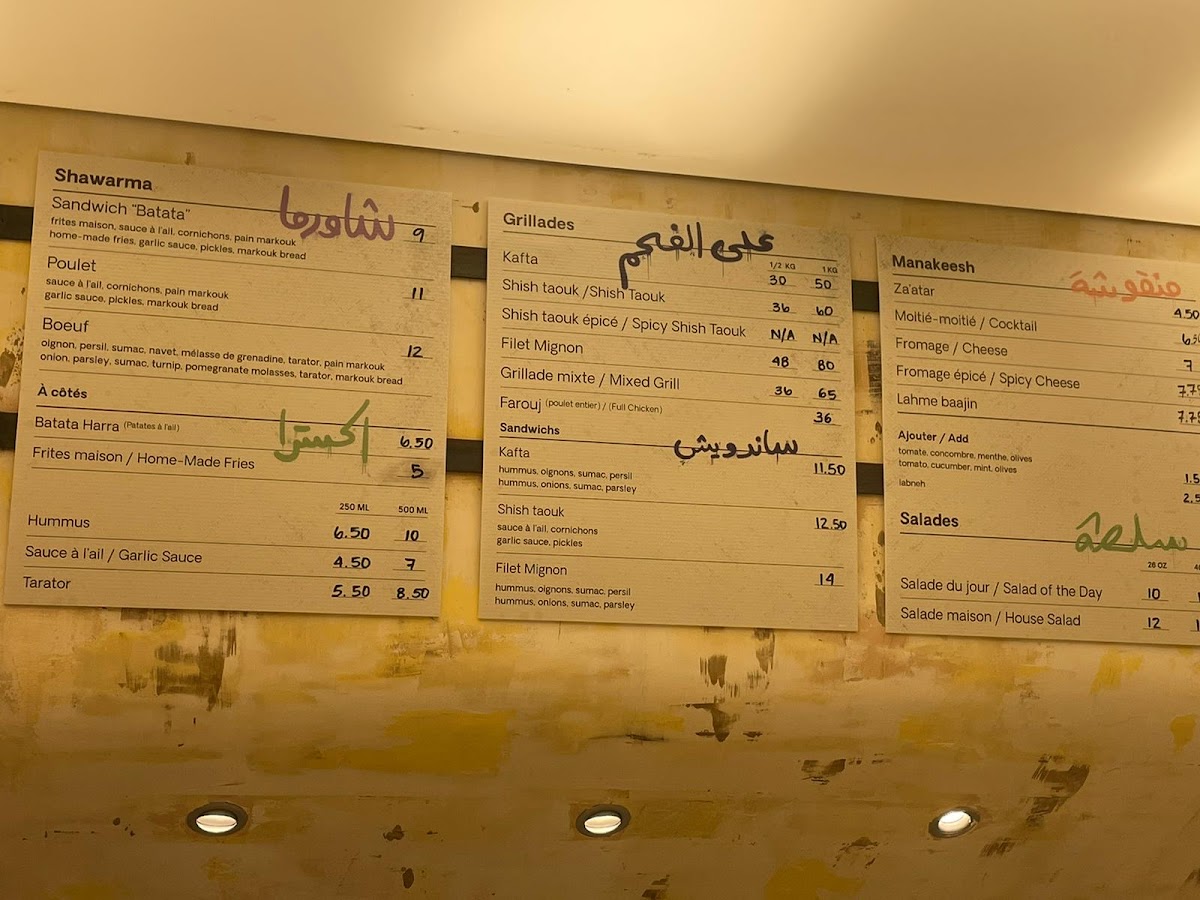 Shawarma
شاورما
Sandwich "Batata" 9
frites maison, sauce à l'ail, cornichons, pain markouk
home-made fries, garlic sauce, pickles, markouk bread
Poulet 11
sauce à l'ail, cornichons, pain markouk
garlic sauce, pickles, markouk bread
Boeuf 12
oignon, persil, sumac, navet, mélasse de grenadine, tarator, pain markouk
onion, parsley, sumac, turnip, pomegranate molasses, tarator, markouk bread
À côtés
اكسترا
Batata Harra (Patates à l'ail) 6.50
Frites maison / Home-Made Fries 5
250 ML 500 ML
Hummus 6.50 10
Sauce à l'ail / Garlic Sauce 4.50 7
Tarator 5.50 8.50
Grillades
على الفحم
1/2 KG 1 KG
Kafta 30 50
Shish taouk /Shish Taouk 36 60
Shish taouk épicé / Spicy Shish Taouk N/A N/A
Filet Mignon 48 80
Grillade mixte / Mixed Grill 36 65
Farouj (poulet entier) / (Full Chicken) 36
Sandwichs
ساندويش
Kafta 11.50
hummus, oignons, sumac, persil
hummus, onions, sumac, parsley
Shish taouk 12.50
sauce à l'ail, cornichons
garlic sauce, pickles
Filet Mignon 14
hummus, oignons, sumac, persil
hummus, onions, sumac, parsley
Manakeesh
منقوشة
Za'atar 4.50
Moitié-moitié / Cocktail
Fromage / Cheese 7
Fromage épicé / Spicy Cheese
Lahme baajin
Ajouter / Add
tomate, concombre, menthe, olives
tomato, cucumber, mint, olives
labneh
Salades
28 OZ
Salade du jour / Salad of the Day 10
Salade maison / House Salad 12